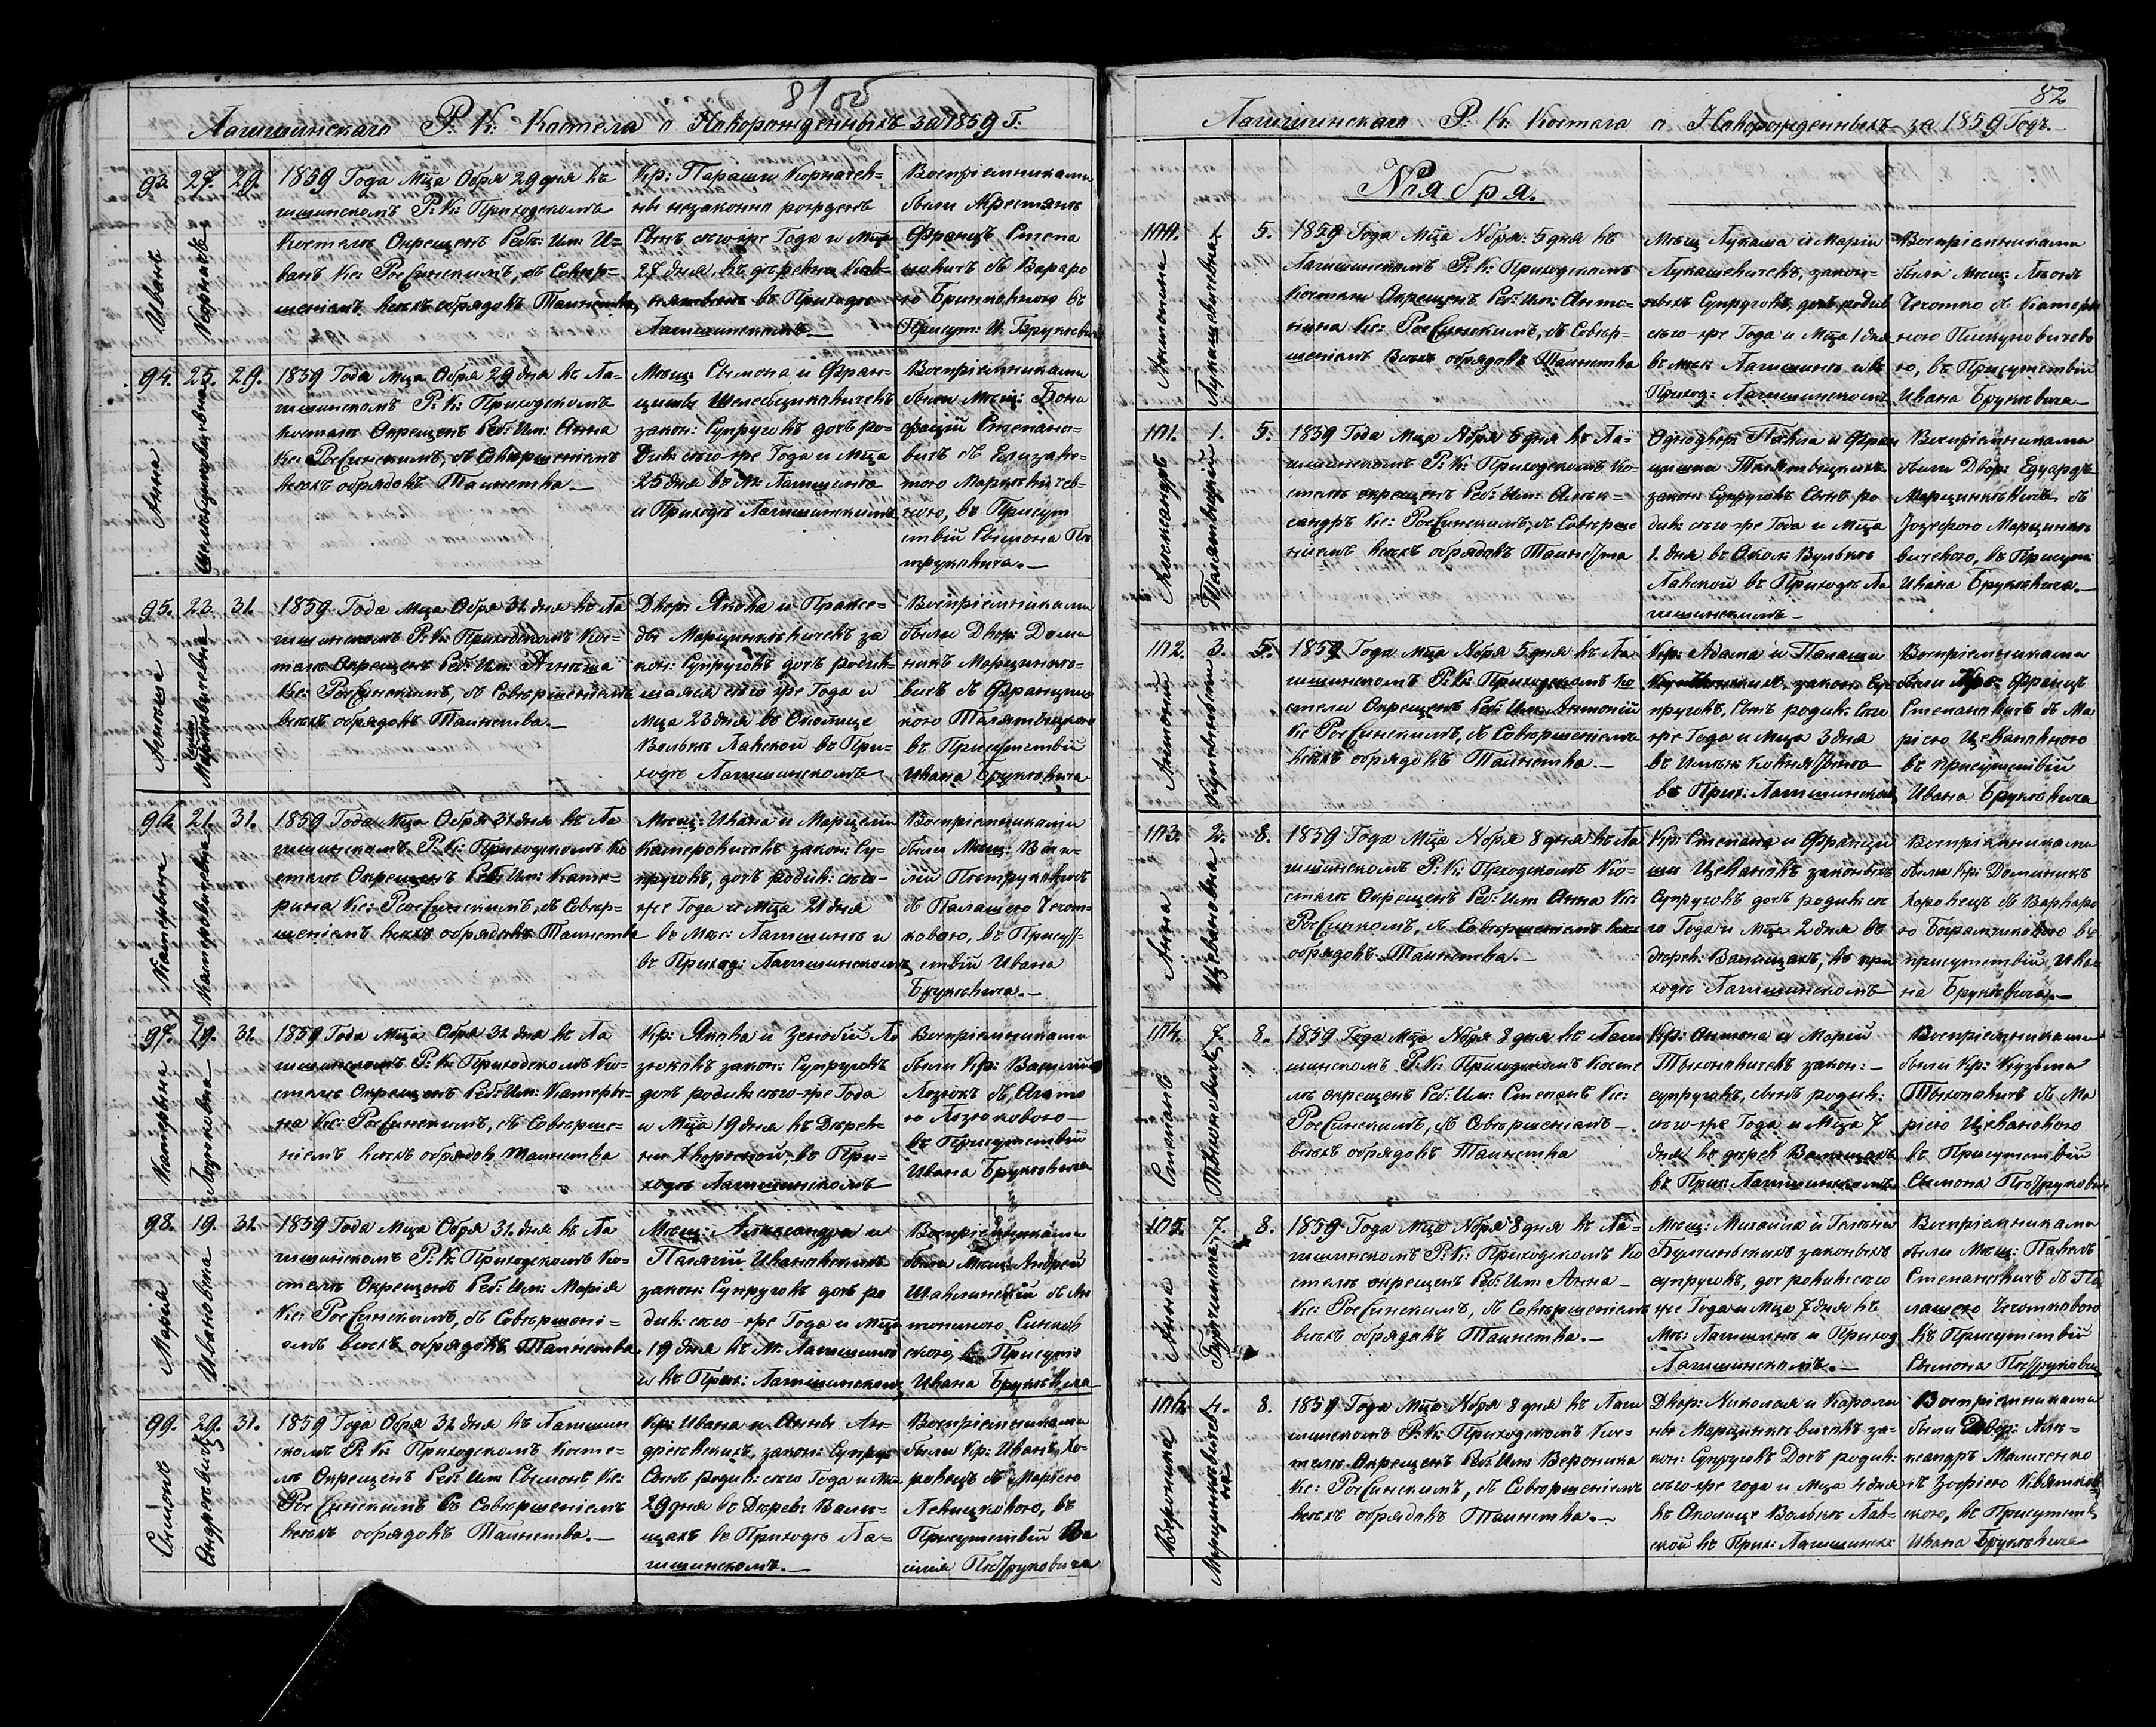 81 об
Лагишинскаго Р. К. Костела о Новорожденныхъ за 1859 Г.
93. 27. 29.
Иванъ
1859 Года Мца Обря 29 дня въ Ла-
гишинскомъ Р: К: Приходскомъ
Костелѣ Окрещенъ Реб: Им: И-
ванъ Кс:
шеніемъ всѣхъ обрядовъ Таинства
Кр: Параши
ны незаконно рожденъ
Сынъ сего-же Года и Мца
27 дня въ деревни
въ Приходѣ
Лагишинскомъ
Воспріемниками
были Крестянъ
Францъ Степа
новичъ съ Варваро
ю въ
Присут: И. Бруковича
94. 25. 29.
Анна
1859 Года Мца Обря 29 дня въ Ла-
гишинскомъ Р: К: Приходскомъ
Костелѣ Окрещенъ Реб: Им: Анна
Кс: съ Совершеніемъ
всѣхъ обрядовъ Таинства.—
Мѣщ: Сымона и Фран-
цишки
закон: Супруговъ дочь ро-
див: сего-же Года и Мца
25 дня въ М: Лагишинѣ
и Приходѣ Лагишинскимъ
Воспріемниками
были Мѣщ: Бони
фацій Степано-
вичъ съ Елизаве-
тою
ною, въ Присут
ствій Сымона Пе
труковича.—
95. 23. 31.
Агнеша
Марцинкевичевна
1859 Года Мца Обря 31 дня въ Ла
гишинскомъ Р: К: Приходскомъ Кос-
телѣ Окрещенъ Реб: Им: Агнеша
Кс: съ Совершеніемъ
всѣхъ обрядовъ Таинства.—
Двор: Якова и Праксе-
ды Марцинкевичевъ за
кон: Супруговъ дочь родив-
шаяся сего же Года и
Мца 23 дня въ Околице
Волькѣ Лавской въ При-
ходѣ Лагишинскомъ
Воспріемниками
были Двор: Доми
никъ Марцинке-
вичъ съ Францишкою
въ Присутствій
Ивана Бруковича
96. 21. 31.
Катерына
Катеровичевна
1859 Года Мца Обря 31 дня въ Ла
гишинскомъ Р: К: Приходскомъ Ко
стелѣ Окрещенъ Реб: Им: Кате-
рина Кс: съ Совер-
шеніемъ всѣхъ обрядовъ Таинства
Мѣщ: Ивана и Марцели
Катеровичевъ закон: Су-
пруговъ, дочь родив: сего-
же Года и Мца 21 дня
въ Мѣс: Лагишинѣ и
въ Приход: Лагишинскомъ
Воспріемниками
были Мѣщ: Васи-
лій Петруковичъ
съ Палашею Чечот-
ковою, въ Присут-
ствій Ивана
Бруковича.—
97. 19. 31.
Катерына
Лозюковна
1859 Года Мца Обря 31 дня въ Ла
гишинскомъ Р: К: Приходскомъ Ко-
стелѣ Окрещенъ Реб: Им: Катеры-
на Кс: съ Соверше-
ніемъ всѣхъ обрядовъ Таинства
Кр: Якова и Зенобіи Ло
зюковъ закон: Супруговъ
дочь родив: сего-же Года
и Мца 19 дня въ Дерев-
ни въ При-
ходѣ Лагишинскомъ
Воспріемниками
были Кр: Василій
Лозюкъ съ Агато
ю Лозюковою
въ Присутствій
Ивана Бруковича
98. 19. 31.
Марія
Ивановска
1859 Года Мца Обря 31 дня въ Ла
гишинскомъ Р: К: Приходскомъ Ко-
стелѣ Окрещенъ Реб: Им: Марія
Кс: съ Совершені-
емъ всѣхъ обрядовъ Таинства
Мѣщ: Александра и
Палагіи Ивановскихъ
закон: Супруговъ дочь ро
див: сего-же Года и Мца
19 дня въ М: Лагишинѣ
и въ Прих: Лагишинском
Воспріемниками
были Мѣщ: Андрей
съ Ан
тониною
скою, Присутс
Ивана Бруковича
99. 29. 31.
Сымонъ
1859 Года Обря 31 дня въ Лагишин
скомъ Р: К: Приходскомъ Косте-
лѣ Окрещенъ Реб: Им: Сымонъ Кс:
съ Совершеніемъ
всѣхъ обрядовъ Таинства.—
Кр: Ивана и Анны Ан-
закон: Супруг
Сынъ родив: сего Года и Мца
29 дня въ Дерев: Вали-
щахъ въ Приходѣ Ла-
гишинскомъ.—
Воспріемниками
были Кр: Иванъ Хо-
ровецъ съ Маріею
Левицковою, въ
Присутствій Ва
силія Петруковича
82
Лагишинскаго Р. К. Костела о Новорожденныхъ за 1859 Годъ.
Ноября.
100. 1. 5.
Антонина
Лукашевичевна
1859 Года Мца Нбря: 5 дня въ
Лагишинскомъ Р: К: Приходскомъ
Костели Окрещенъ Реб: Им: Анто-
нина Кс: съ Совер-
шеніемъ Всѣхъ обрядовъ Таинства
Мѣщ Лукаша и Маріи
Лукашевичевъ, закон-
ныхъ Супруговъ, дочь родив
сего-же Года и Мца 1 дня
въ мѣс Лагишинѣ и въ
Приход: Лагишинскомъ
Воспріемниками
были Мѣщ: Леонъ
Чечотко съ Катеры
ною
ю, въ Присутствій
Ивана Бруковича
101. 1. 5.
Александръ
1859 Года Мца Нбря 5 дня въ Ла-
гишинскомъ Р: К: Приходскомъ Ко-
стелѣ окрещенъ Реб: Им: Алек-
сандръ Кс: съ Соверше
ніемъ всѣхъ обрядовъ Таинства
Однодвор: Павла и Фран
цишки
закон: Супруговъ Сынъ ро
див: сего-же Года и Мца
1. дня въ Окол: Вулькѣ
Лавской въ Приходѣ Ла
гишинскимъ
Воспріемниками
были Двор: Едуардъ
Марцинкевичъ съ
Іозефою Марцинке
вичевою, въ Присутс
Ивана Бруковича.—
102. 3. 5.
Антоній
1859 Года Мца Нбря 5 дня въ Ла
гишинскомъ Р: К: Приходскомъ Ко
стели Окрещенъ Реб: Им: Антоній
Кс съ Совершеніемъ
всѣхъ обрядовъ Таинства.—
Кр: Адама и Палаши
закон: Су
пруговъ, сынъ родив: Сего
же Года и Мца 3 дня
въ
въ Прих: Лагишинском
Воспріемниками
были Кр: Францъ
Степановичъ съ Ма
ріею Цевановною
въ Присутствій
Ивана Бруковича
103. 2. 8.
Анна
Цевановна
1859 Года Мца Нбря 8 дня въ Ла
гишинскомъ Р: К: Приходскомъ Ко-
стелѣ Окрещенъ Реб: Им Анна Кс:
съ Совершеніемъ всѣхъ
обрядовъ Таинства.—
Кр: Степана и Франци
шки Цевановъ законыхъ
Супруговъ дочь родив: се
го Года и Мца 2 дня въ
дерев: Валищахъ, въ при
ходѣ Лагишинскомъ
Воспріемниками
были Кр: Доминикъ
Хоровецъ съ Варваро
ю въ
присутствій Ива-
на Бруковича.—
104. 7. 8.
Степанъ
1859 Года Мца Нбря 8 дня въ Лаги
шинскомъ Р: К: Приходскомъ Косте
лѣ окрещенъ Реб: Им: Степанъ Кс:
съ Совершеніемъ
всѣхъ обрядовъ Таинства
Кр: Антона и Маріи
закон:—
супруговъ, сынъ родив:
сего-же Года и Мца 7
дня въ дерев Валищахъ
въ Прих: Лагишинскомъ
Воспріемниками
были Кр: Кузьма
съ Ма
ріею Цевановою
въ Присутствій
Сымона Петрукови
105. 7. 8.
Анна
1859 Года Мца Нбря 8 дня въ Ла-
гишинскомъ Р: К: Приходскомъ Ко
стелѣ окрещенъ Реб: Им: Анна
Кс: съ Совершеніемъ
всѣхъ обрядовъ Таинства.—
Мѣщ: Михаила и Гелены
законыхъ
супруговъ, доч родив: сего
же Года и Мца 7 дня въ
Мѣ: Лагишинѣ и Приход
Лагишинскомъ.—
Воспріемниками
были Мѣщ: Павелъ
Степановичъ съ Па
лашею Чечотковою
въ Присутствій
Сымона Петрукови
106. 4. 8.
Вероника
Марцинкевичев
на
1859 Года Мца Нбря 8 дня въ Лаги
шинскомъ Р: К: Приходскомъ Кос-
телѣ Окрещенъ Реб: Им Вероника
Кс: съ Совершеніемъ
всѣхъ обрядовъ Таинства.—
Двор: Николая и Кароли
ны Марцинкевичевъ за-
кон: Супруговъ Дочь родив:
сего-же года и Мца 4 дня
въ Околице Волькѣ Лав-
ской въ Прих: Лагишинск
Воспріемниками
были Двор: Але-
ксандръ
съ Зофіею
скою, въ Присутств
Ивана Бруковича